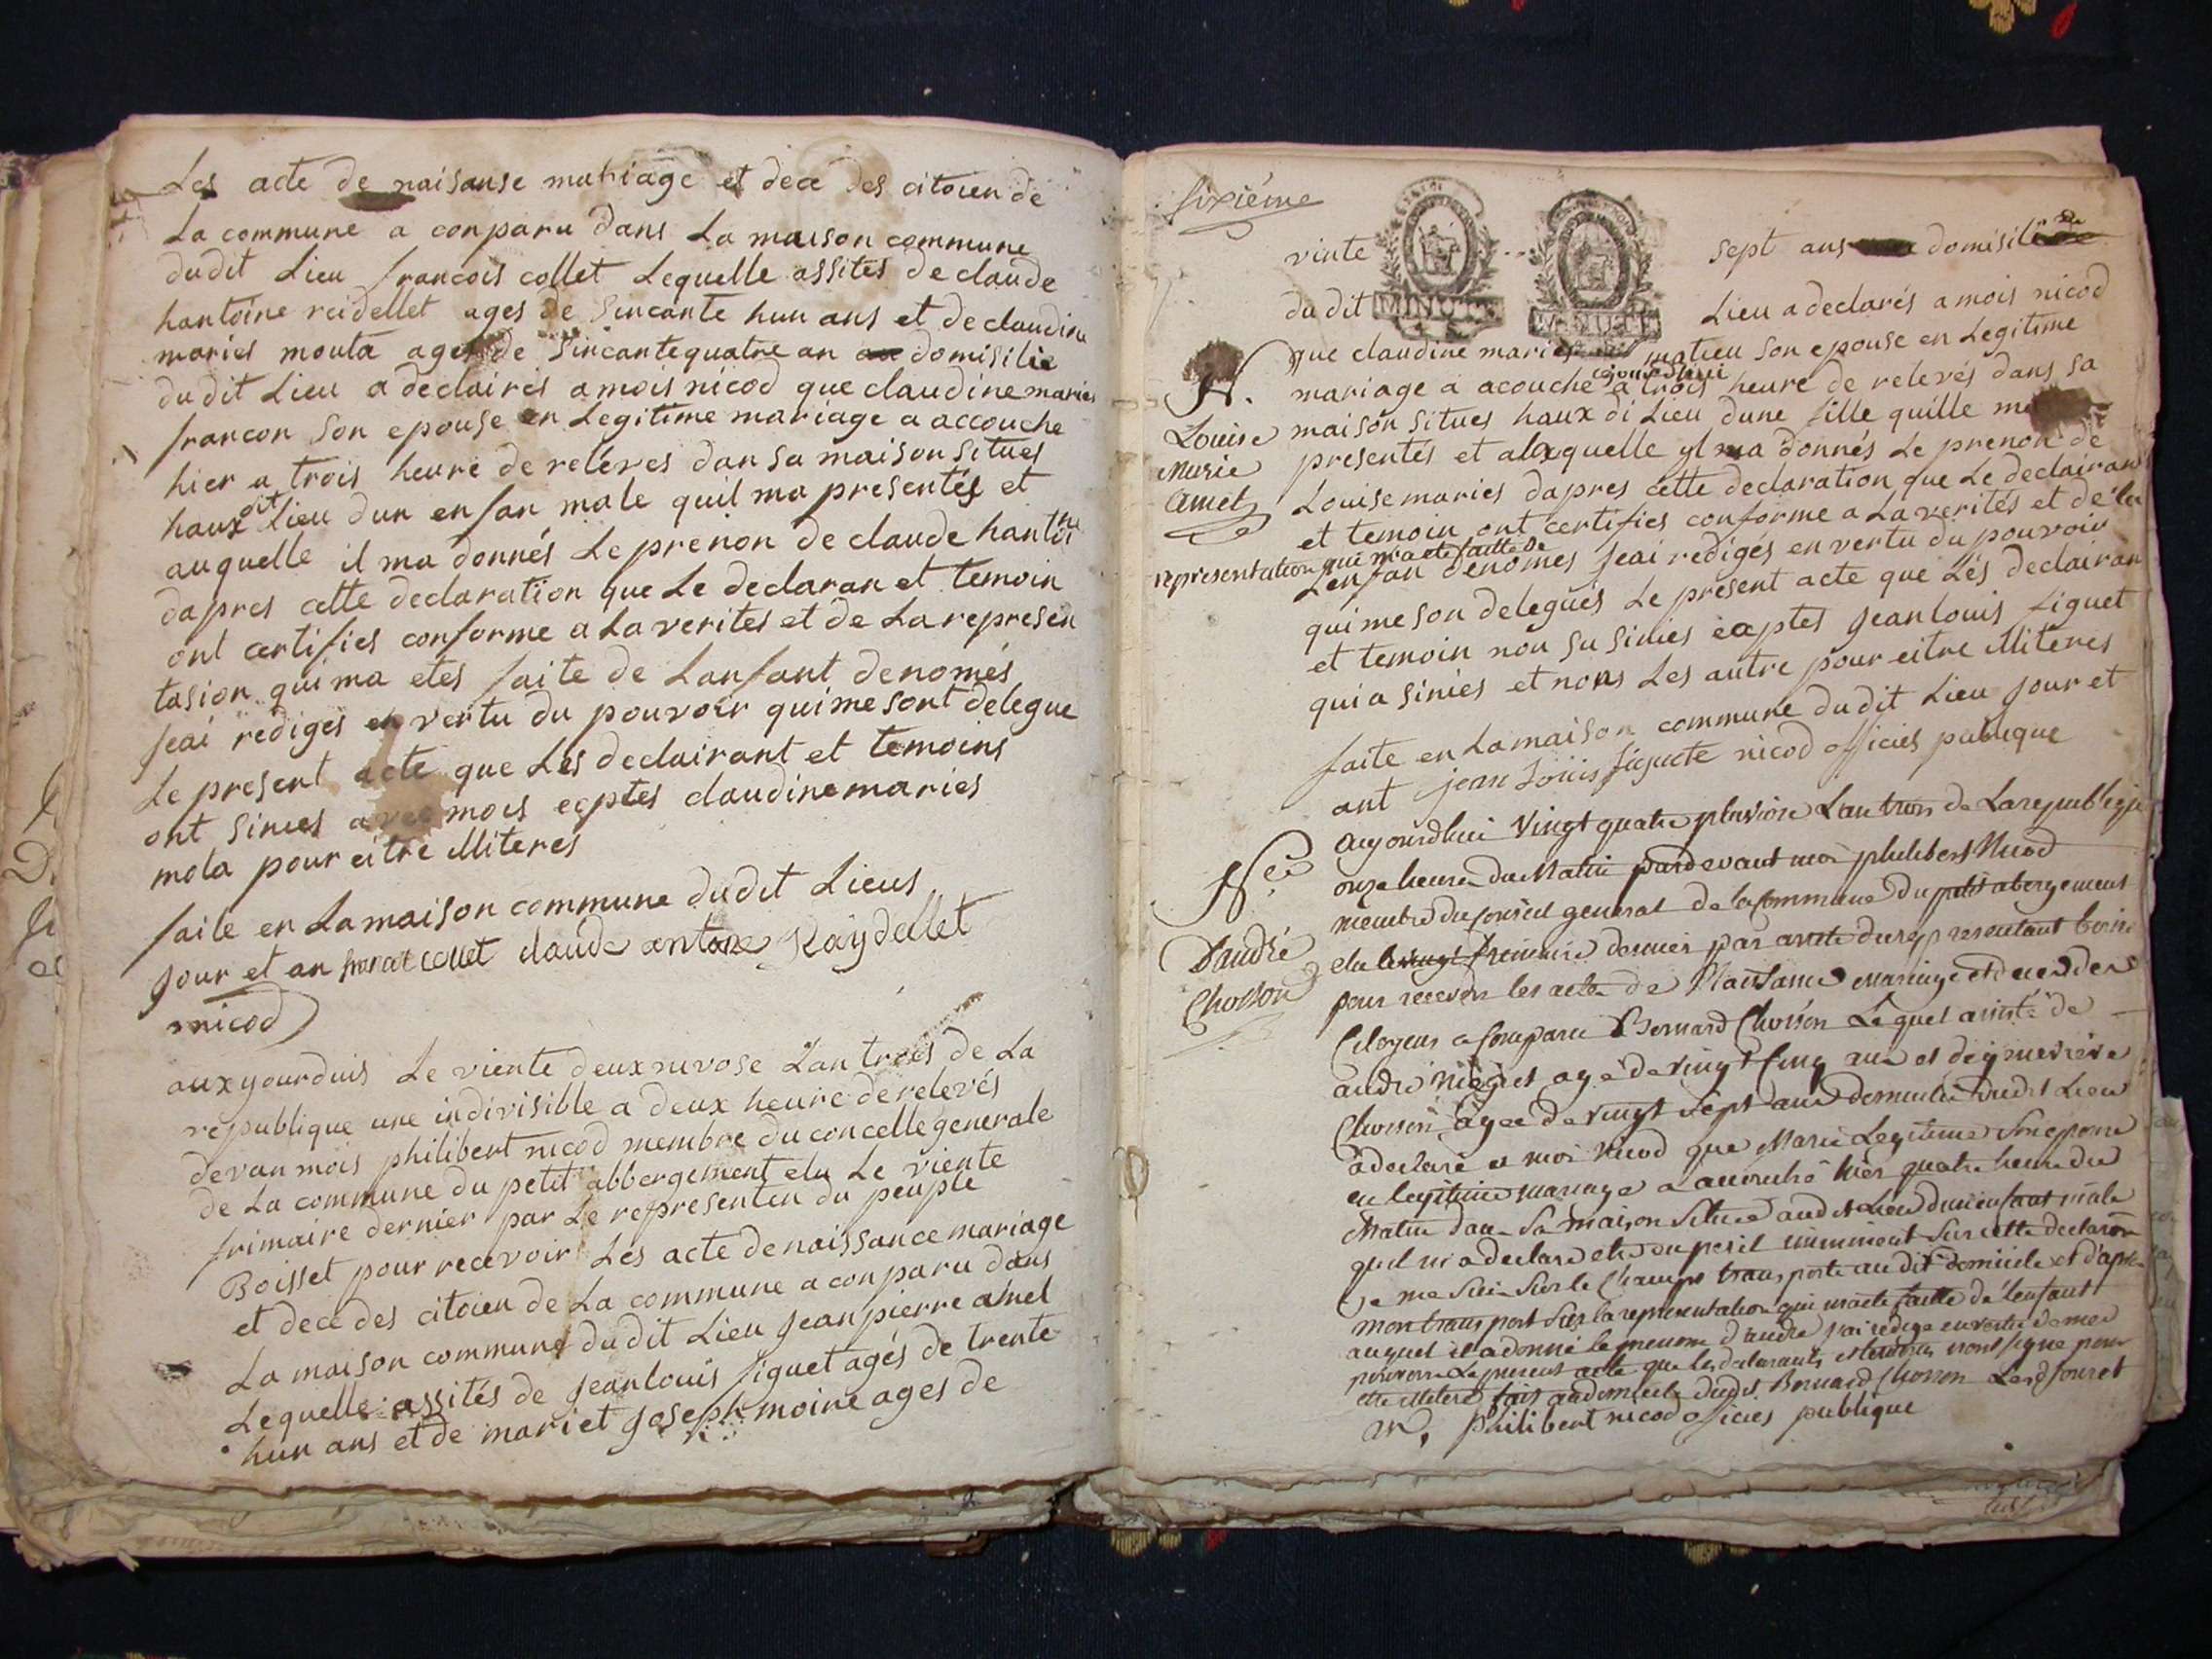 Les acte de naisanse mariage et dece des citoien de
La commune a conparu dans La maison commune
dudit Lieu francois collet Lequelle assites de claude
hantoine reidellet ages de sincante hun ans et de claudine
maries mouta ages de sincante quatre an domisilie
dudit Lieu a declaires a mois nicod que claudine maries
francon son epouse en Legitime mariage a accouche
hier a trois heure de releves dan sa maison situes
haux dit Lieu dun enfan male quil ma presentés et
auquelle il ma donnés Le prenon de claude hantne
dapres cette declaration que Le declaran et temoin
ont certifies conforme a La verites et de La represen
tasion qui ma etes faite de Lanfant denomés
Jeai rediges en vertu du pouvoir qui me sont delegue
Le present acte que Les declairant et temoins
ont sinies avec mois eeptes claudine maries
mota pour eitre illiteres
faite en La maison commune dudit Lieus
Jour et an collet claude antone Raydellet
nicod
auxyourduis Le viente deux nivose Lan trois de La
republique une indivisible a deux heure de relevés
devan mois philibert nicod membre du concelle generale
de La commune du petit abbergement elu Le viente
frimaire dernier par Le representen du peuple
Boisset pour recevoir Les acte de naissance mariage
et dece des citoien de La commune a conparu dans
La maison commune dudit Lieu Jean pierre amel
Lequelle assités de Jean louis figuet agés de trente
hun ans et de mariet Joseph moine ages de
sixiéme
vinte sept ans domisilié de
dudit MINUTE MINUTE Lieu a declarés a mois nicod
que claudine maries matieu son epouse en Legitime
mariage a acouche ajourdhui a trois heure de relevés dans sa
maison situes haux di Lieu dune fille quille ma
presentés et alaquelle yl ma donnés Le prenon de
Louise maries dapres cette declaration que Le declairan
et temoin ont certifies conforme a La verités et de la
representation qui m'a ete faitte de
Lenfan denomes Jeai redigés en vertu du pouvoir
qui me son delegués Le present acte que Lés declairan
et temoin non su sinies eeptes Jean louis figuet
qui a sinies et nons Les autre pour eitre illiteres
faite en La maison commune dudit Lieu Jour et
ant jean Loüis figuete nicod officies publique
N.
Louise
Marie
amel
aujourdhui vingt quatre pluviose L'an trois de La republique
onze heures du Matin pardevant moi philibert Nicod
membre du conseil general de la commune du petit abergement
elu le vingt frimaire dernier par arrete du representant boisset
pour recevoir les actes de Naissance mariage et deces des
Citoyens a comparu Bernard Chosson Lequel assisté de
andré agé de vingt cinq ans et de
Chosson agée de vingt sept ans domicilié dudit Lieu
a declaré a moi Nicod que Marie Legitime son epouse
en legitime mariage a accouché hier quatre heure du
Matin dans sa maison située audit Lieu d'un enfant mâle
quil m'a declaré etre en peril imminent sur cette declaration
je me suis sur le champ transporté au dit domicile et d'après
mon transport sur la representation qui m'a eté faitte de l'enfant
auquel il a donné le prenom d'andré j'ai redigé en vertu de mes
pouvoirs Le present acte que les declarants et temoins n'ont signé pour
etre illiteré fait au domicile dudit Bernard Chosson Les d jour et
an, Philibert nicod officies publique
N.ce
D'andré
Chosson